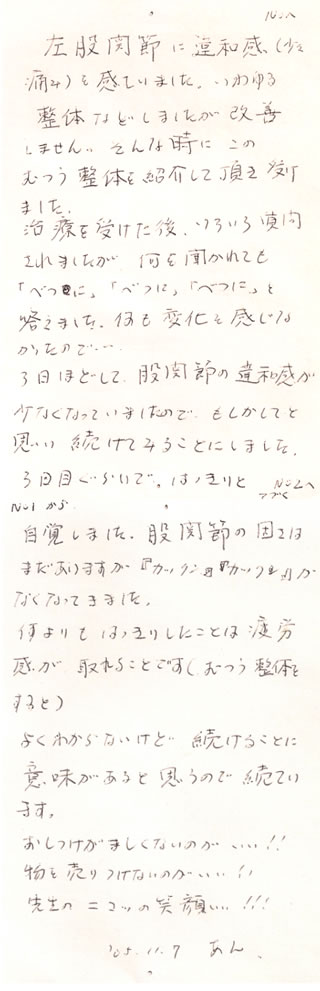 No1へ
左股関節に違和感(少々
痛み)を感ていました。いわゆる
整体などしましたが改善
しません。そんな時にこの
むつう整体を紹介して頂き受け
ました。
治療を受けた後、いろいろ質問
されましたが何を聞かれても
「べつに」、「べつに」「べつに」と
答えました。何も変化を感じな
かったので…
3日ほどして、股関節の違和感が
少なくなっていましたので、もしかしてと
思い続けてみることにしました。
3回目ぐらいで、はっきりと No2へつづく
No1から
自覚しました。股関節の固さは
まだありますが『カックン』『カックン』が
なくなってきました。
何よりもはっきりしたことは疲労
感が取れることです(むつう整体を
すると)
よくわからないけど続けることに
意味があると思うので続てい
ます。
おしつけがましくないのがいい!!
物を売りつけないのがいい!!
先生のニコッの笑顔いい!!!
'05.11.7 あん、